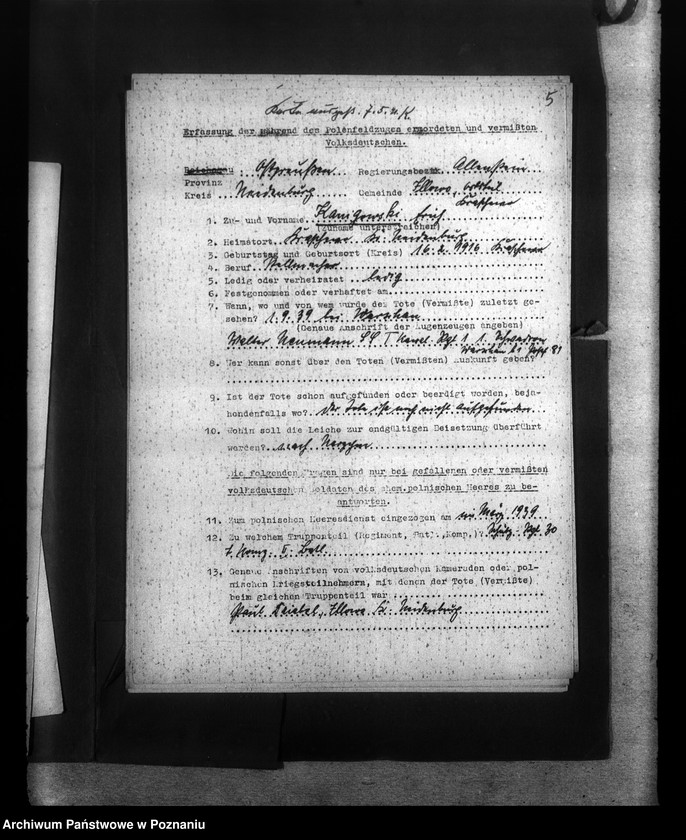 5
Erfassung der während des Polenfeldzuges ermordeten und vermißten
Volksdeutschen.
Reichsgau Ostpreußen Regierungsbezirk Allenstein
Provinz
Kreis Neidenburg Gemeinde Illowo, Ortsteil
1. Zu- und Vorname Kanigowski Erich
(Zuname unterstreichen)
2. Heimatort Kr. Neidenburg
3. Geburtstag und Geburtsort (Kreis) 16.2.1916
4. Beruf Stellmacher
5. Ledig oder verheiratet ledig
6. Festgenommen oder verhaftet am
7. Wann, wo und von wem wurde der Tote (Vermißte) zuletzt ge-
sehen? 1.9.39 bei Warschau
(Genaue Anschrift der Augenzeugen angeben)
Walter Neumann SS T. Kavel. Rgt 1 1. Schwadron
Warschau
8. Wer kann sonst über den Toten (Vermißten) Auskunft geben?
9. Ist der Tote schon aufgefunden oder beerdigt worden, beja-
hendenfalls wo? der Tote ist noch nicht aufgefunden
10. Wohin soll die Leiche zur endgültigen Beisetzung überführt
werden? nach
Die folgenden Fragen sind nur bei gefallenen oder vermißten
volksdeutschen Soldaten des ehem.polnischen Heeres zu be-
antworten.
11. Zum polnischen Heeresdienst eingezogen am im März 1939
12. Zu welchem Truppenteil (Regiment, Batl.,Komp.)? Schütz. Rgt 30
II. Batl.
13. Genaue Anschriften von volksdeutschen Kameraden oder pol-
nischen Kriegsteilnehmern, mit denen der Tote (Vermißte)
beim gleichen Truppenteil war
Paul Illowo Kr. Neidenburg
Archiwum Państwowe w Poznaniu